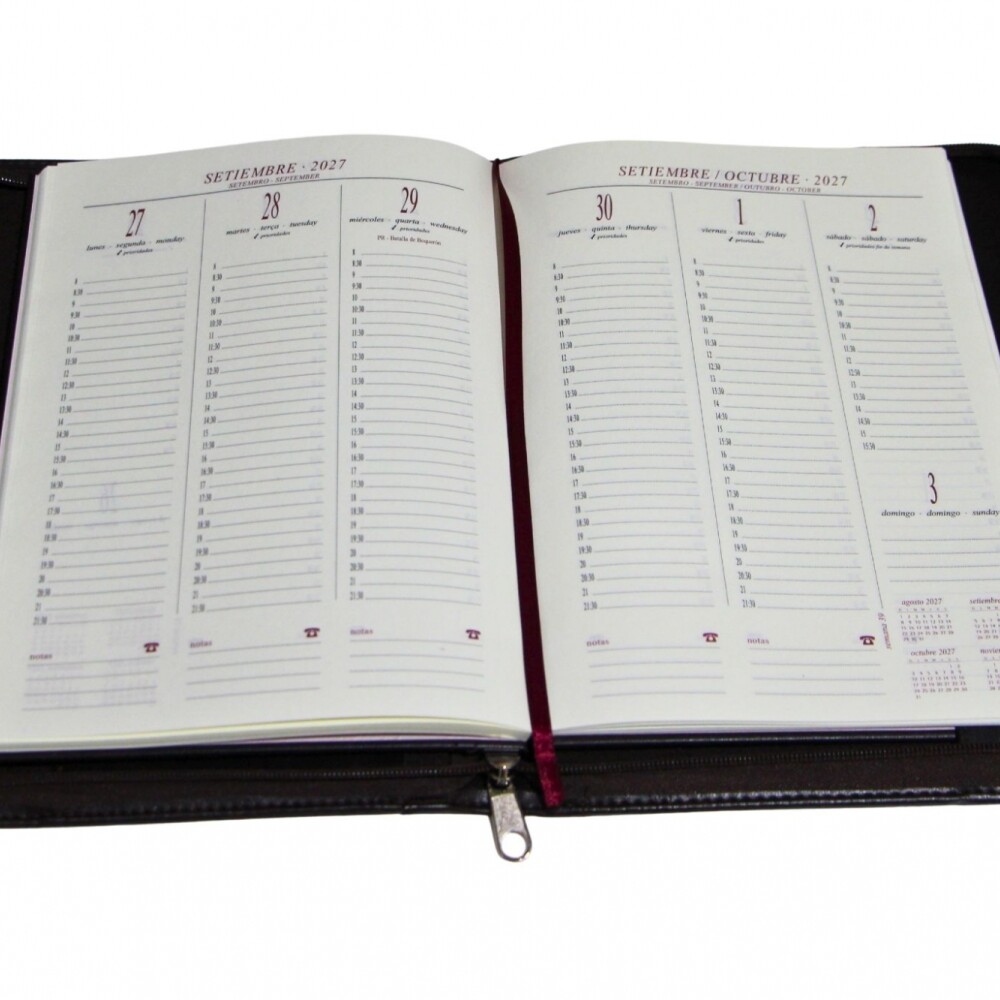 SETIEMBRE · 2027
SETEMBRO - SEPTEMBER
27
lunes - segunda - monday
✓ prioridades
8
8:30
9
9:30
10
10:30
11
11:30
12
12:30
13
13:30
14
14:30
15
15:30
16
16:30
17
17:30
18
18:30
19
19:30
20
20:30
21
21:30
notas
28
martes - terça - tuesday
✓ prioridades
8
8:30
9
9:30
10
10:30
11
11:30
12
12:30
13
13:30
14
14:30
15
15:30
16
16:30
17
17:30
18
18:30
19
19:30
20
20:30
21
21:30
notas
29
miércoles - quarta - wednesday
✓ prioridades
PR - Batalla de Boquerón
8
8:30
9
9:30
10
10:30
11
11:30
12
12:30
13
13:30
14
14:30
15
15:30
16
16:30
17
17:30
18
18:30
19
19:30
20
20:30
21
21:30
notas
SETIEMBRE / OCTUBRE · 2027
SETEMBRO - SEPTEMBER / OUTUBRO - OCTOBER
30
jueves - quinta - thursday
✓ prioridades
8
8:30
9
9:30
10
10:30
11
11:30
12
12:30
13
13:30
14
14:30
15
15:30
16
16:30
17
17:30
18
18:30
19
19:30
20
20:30
21
21:30
notas
1
viernes - sexta - friday
✓ prioridades
8
8:30
9
9:30
10
10:30
11
11:30
12
12:30
13
13:30
14
14:30
15
15:30
16
16:30
17
17:30
18
18:30
19
19:30
20
20:30
21
21:30
notas
2
sábado - sábado - saturday
✓ prioridades fin de semana
8
8:30
9
9:30
10
10:30
11
11:30
12
12:30
13
13:30
14
14:30
15
15:30
3
domingo - domingo - sunday
semana 39
agosto 2027
octubre 2027